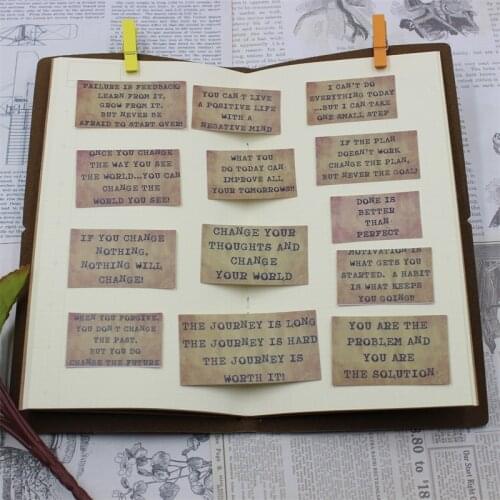 FAILURE IS FEEDBACK!
LEARN FROM IT,
GROW FROM IT.
BUT NEVER BE
AFRAID TO START OVER!
YOU CAN'T LIVE
A POSITIVE LIFE
WITH A
NEGATIVE MIND
I CAN'T DO
EVERYTHING TODAY
...BUT I CAN TAKE
ONE SMALL STEP
ONCE YOU CHANGE
THE WAY YOU SEE
THE WORLD...YOU CAN
CHANGE THE
WORLD YOU SEE!
WHAT YOU
DO TODAY CAN
IMPROVE ALL
YOUR TOMORROWS!!
IF THE PLAN
DOESN'T WORK
CHANGE THE PLAN,
BUT NEVER THE GOAL!
DONE IS
BETTER
THAN
PERFECT
IF YOU CHANGE
NOTHING,
NOTHING WILL
CHANGE!
CHANGE YOUR
THOUGHTS AND
CHANGE
YOUR WORLD
MOTIVATION IS
WHAT GETS YOU
STARTED. A HABIT
IS WHAT KEEPS
YOU GOING!!
WHEN YOU FORGIVE,
YOU DON'T CHANGE
THE PAST,
BUT YOU DO
CHANGE THE FUTURE
THE JOURNEY IS LONG
THE JOURNEY IS HARD
THE JOURNEY IS
WORTH IT!
YOU ARE THE
PROBLEM AND
YOU ARE
THE SOLUTION